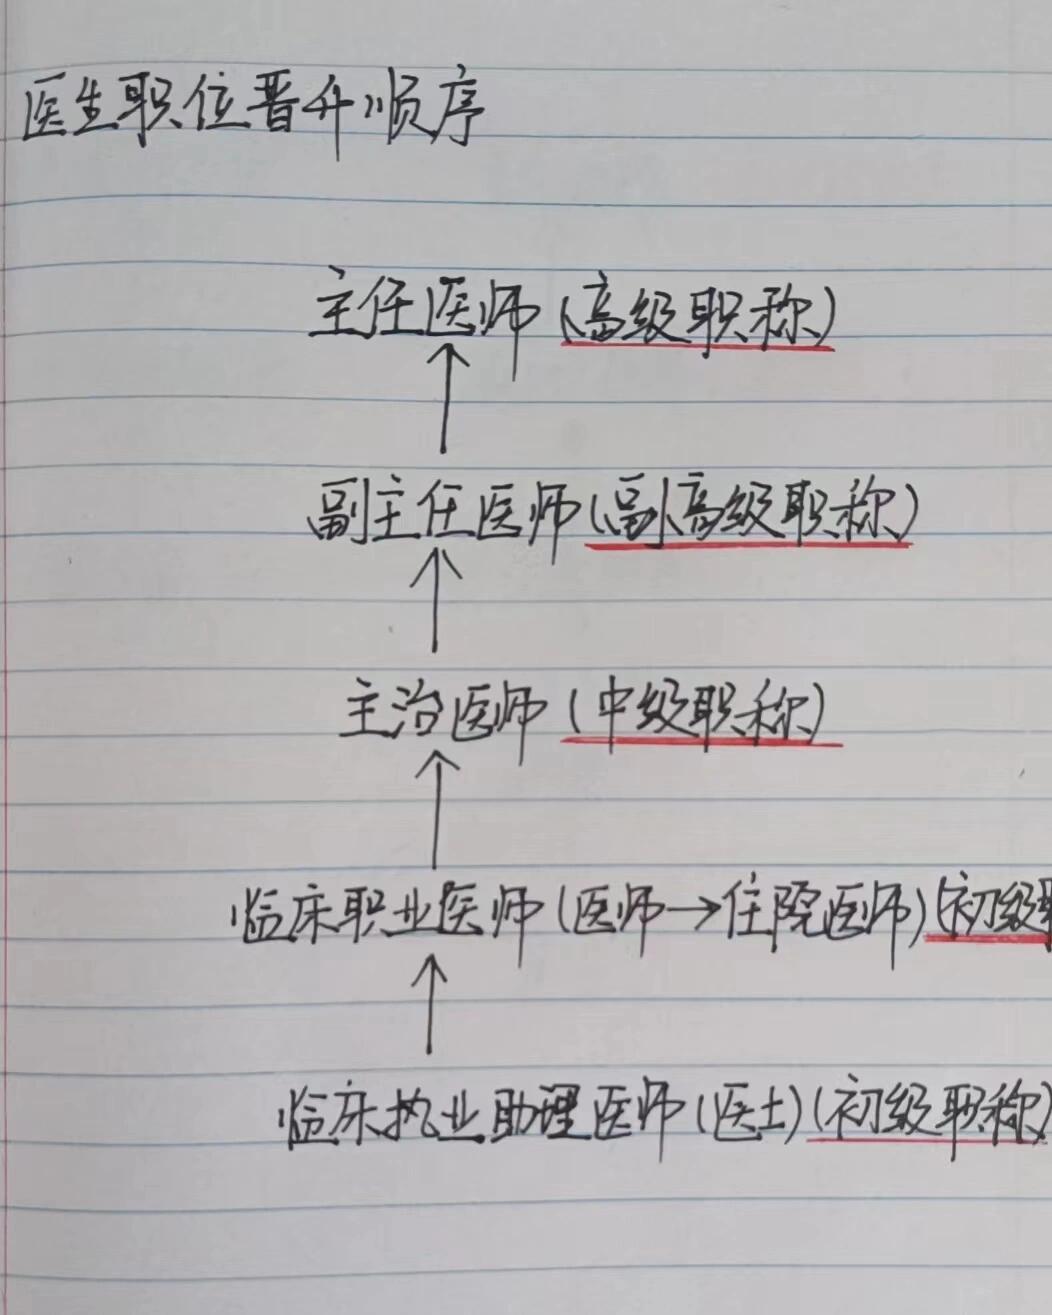 医生职位晋升顺序
主任医师(高级职称)
副主任医师(副高级职称)
主治医师(中级职称)
临床职业医师(医师→住院医师)(初级职
临床执业助理医师(医士)(初级职称)